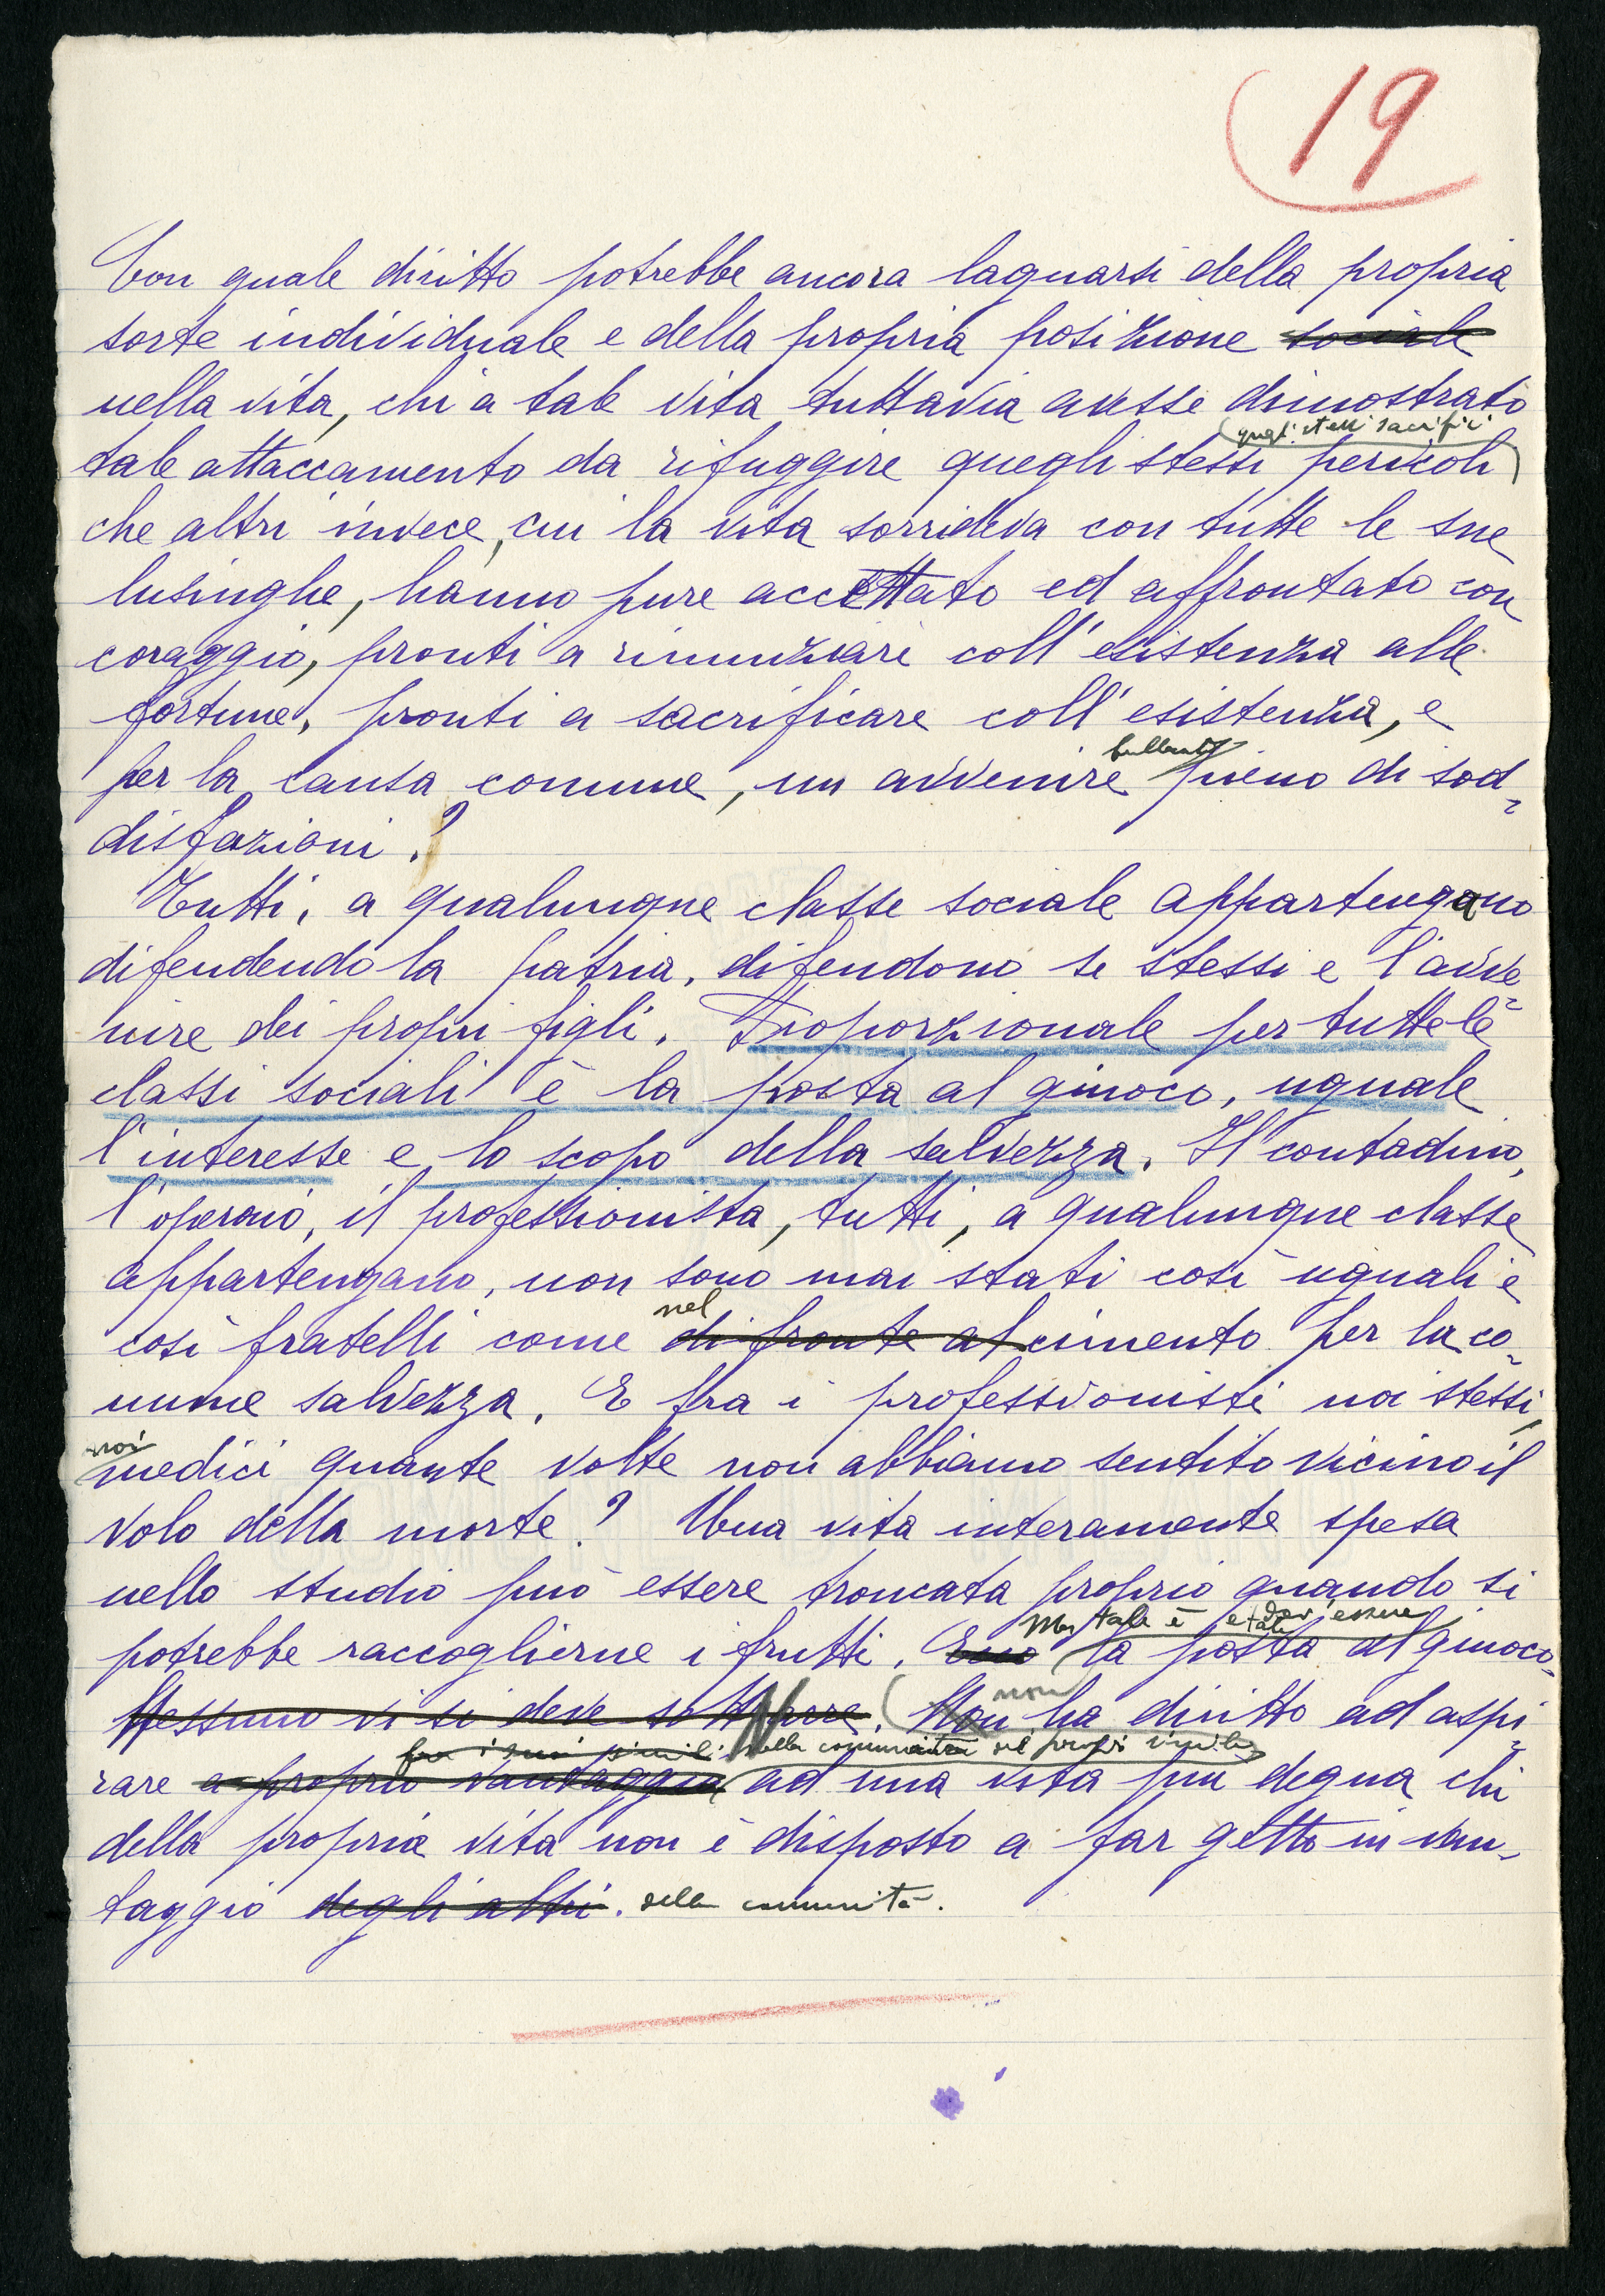 19
Con quale diritto potrebbe ancora lagnarsi della propria
sorte individuale e della propria posizione sociale
nella vita, chi a tale vita tuttavia avesse dimostrato
quegli stessi sacrifici
tale attaccamento da rifuggire quegli stessi pericoli
che altri invece, cui la vita sorrideva con tutte le sue
lusinghe, hanno pure accettato ed affrontato con
coraggio, pronti a rinunziare coll'esistenza alle
fortune, pronti a sacrificare coll'esistenza, e
brillante
per la causa comune, un avvenire pieno di sod-
disfazioni?
Tutti, a qualunque classe sociale appartengano
difendendo la patria, difendono se stessi e l'avve-
nire dei propri figli. Proporzionale per tutte le
classi sociali è la posta al giuoco, uguale
l'interesse e lo scopo della salvezza. Il contadino,
l'operaio, il professionista, tutti, a qualunque classe
appartengano, non sono mai stati così uguali e
nel
così fratelli come di fronte al cimento per la co-
mune salvezza. E fra i professionisti noi stessi,
noi
medici quante volte non abbiamo sentito vicino il
volo della morte? Una vita interamente spesa
nello studio può essere troncata proprio quando si
Ma tale è e tale dev'essere
potrebbe raccoglierne i frutti. Ecco la posta al giuoco.
non
Nessuno vi si deve sottrarre. Non ha diritto ad aspi-
fra i suoi simili nella comunità dei propri simili
rare a proprio vantaggio ad una vita più degna chi
della propria vita non è disposto a far getto in van-
taggio degli altri. della comunità.